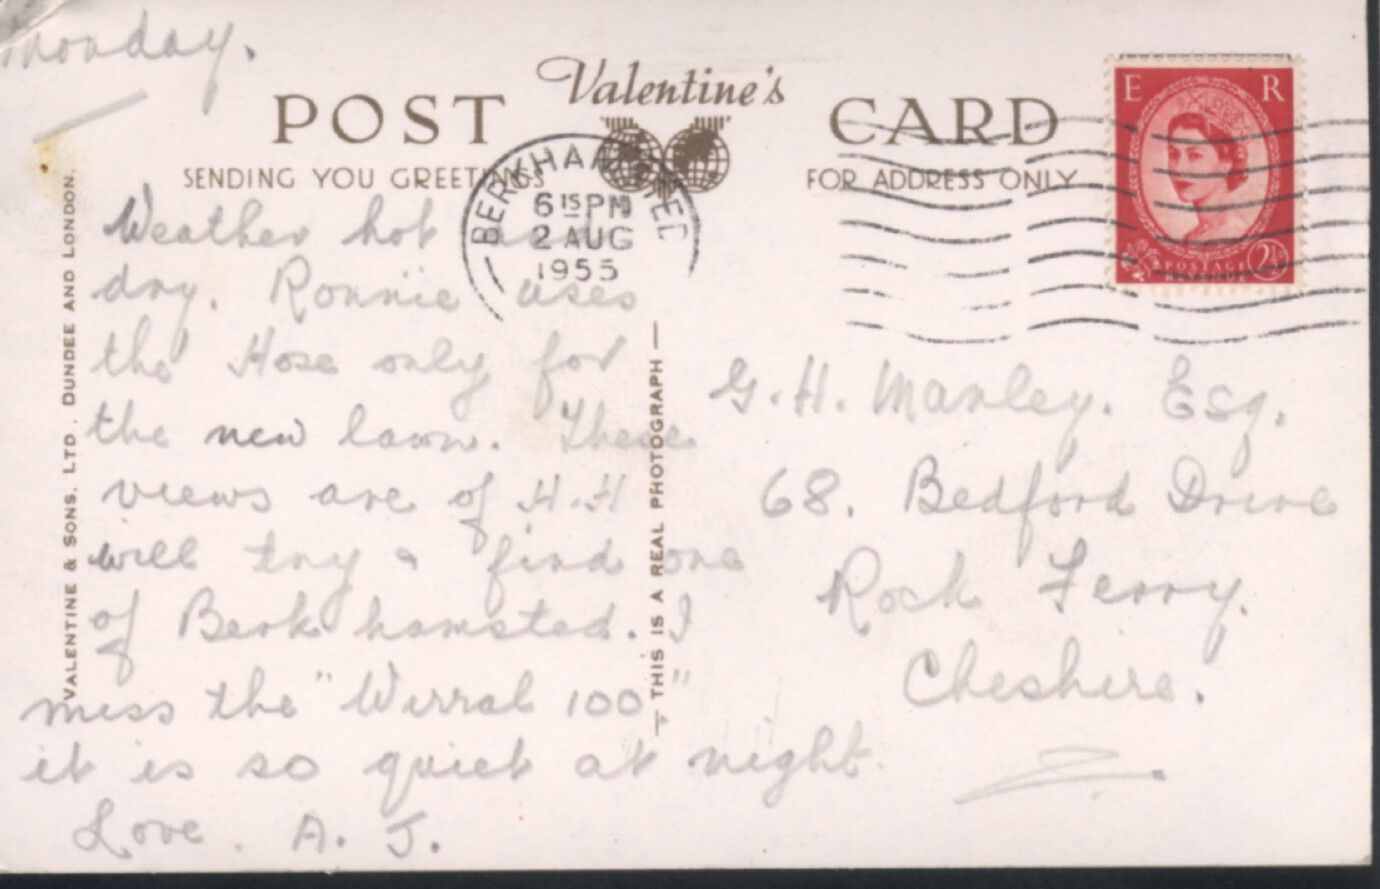 Monday.
Valentine's
POST CARD
SENDING YOU GREETINGS
FOR ADDRESS ONLY
BERKHAMSTED
6 15 PM
2 AUG
1955
E R
POSTAGE
2½
Weather hot and
dry. Ronnie uses
the Hose only for
the new lawn. These
views are of H.H
will try & find one
of Berkhamsted. I
miss the "Wirral 100"
it is so quiet at night.
Love. A. J.
G. H. Manley. Esq.
68. Bedford Drive
Rock Ferry.
Cheshire.
VALENTINE & SONS, LTD., DUNDEE AND LONDON.
— THIS IS A REAL PHOTOGRAPH —